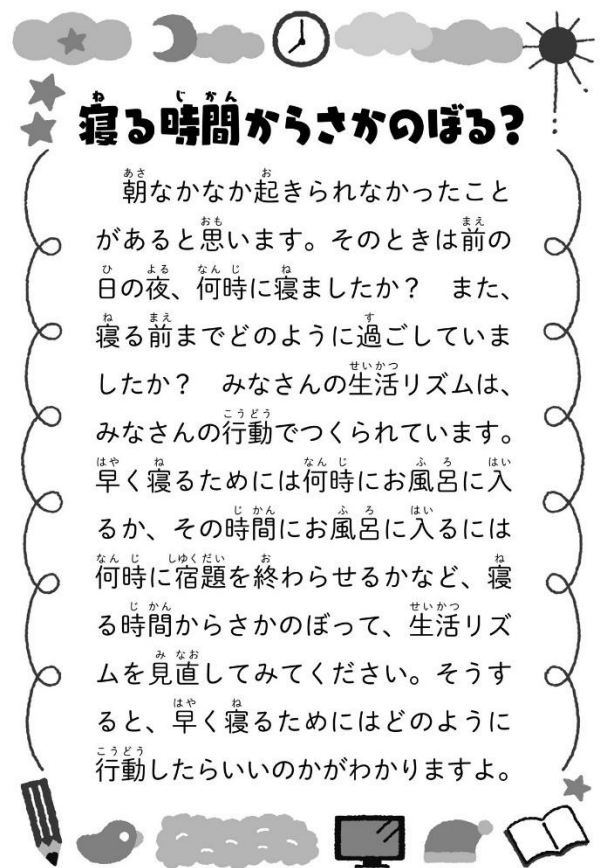 寝る時間からさかのぼる?
朝なかなか起きられなかったこと
があると思います。そのときは前の
日の夜、何時に寝ましたか? また、
寝る前までどのように過ごしていま
したか? みなさんの生活リズムは、
みなさんの行動でつくられています。
早く寝るためには何時にお風呂に入
るか、その時間にお風呂に入るには
何時に宿題を終わらせるかなど、寝
る時間からさかのぼって、生活リズ
ムを見直してみてください。そうす
ると、早く寝るためにはどのように
行動したらいいのかがわかりますよ。